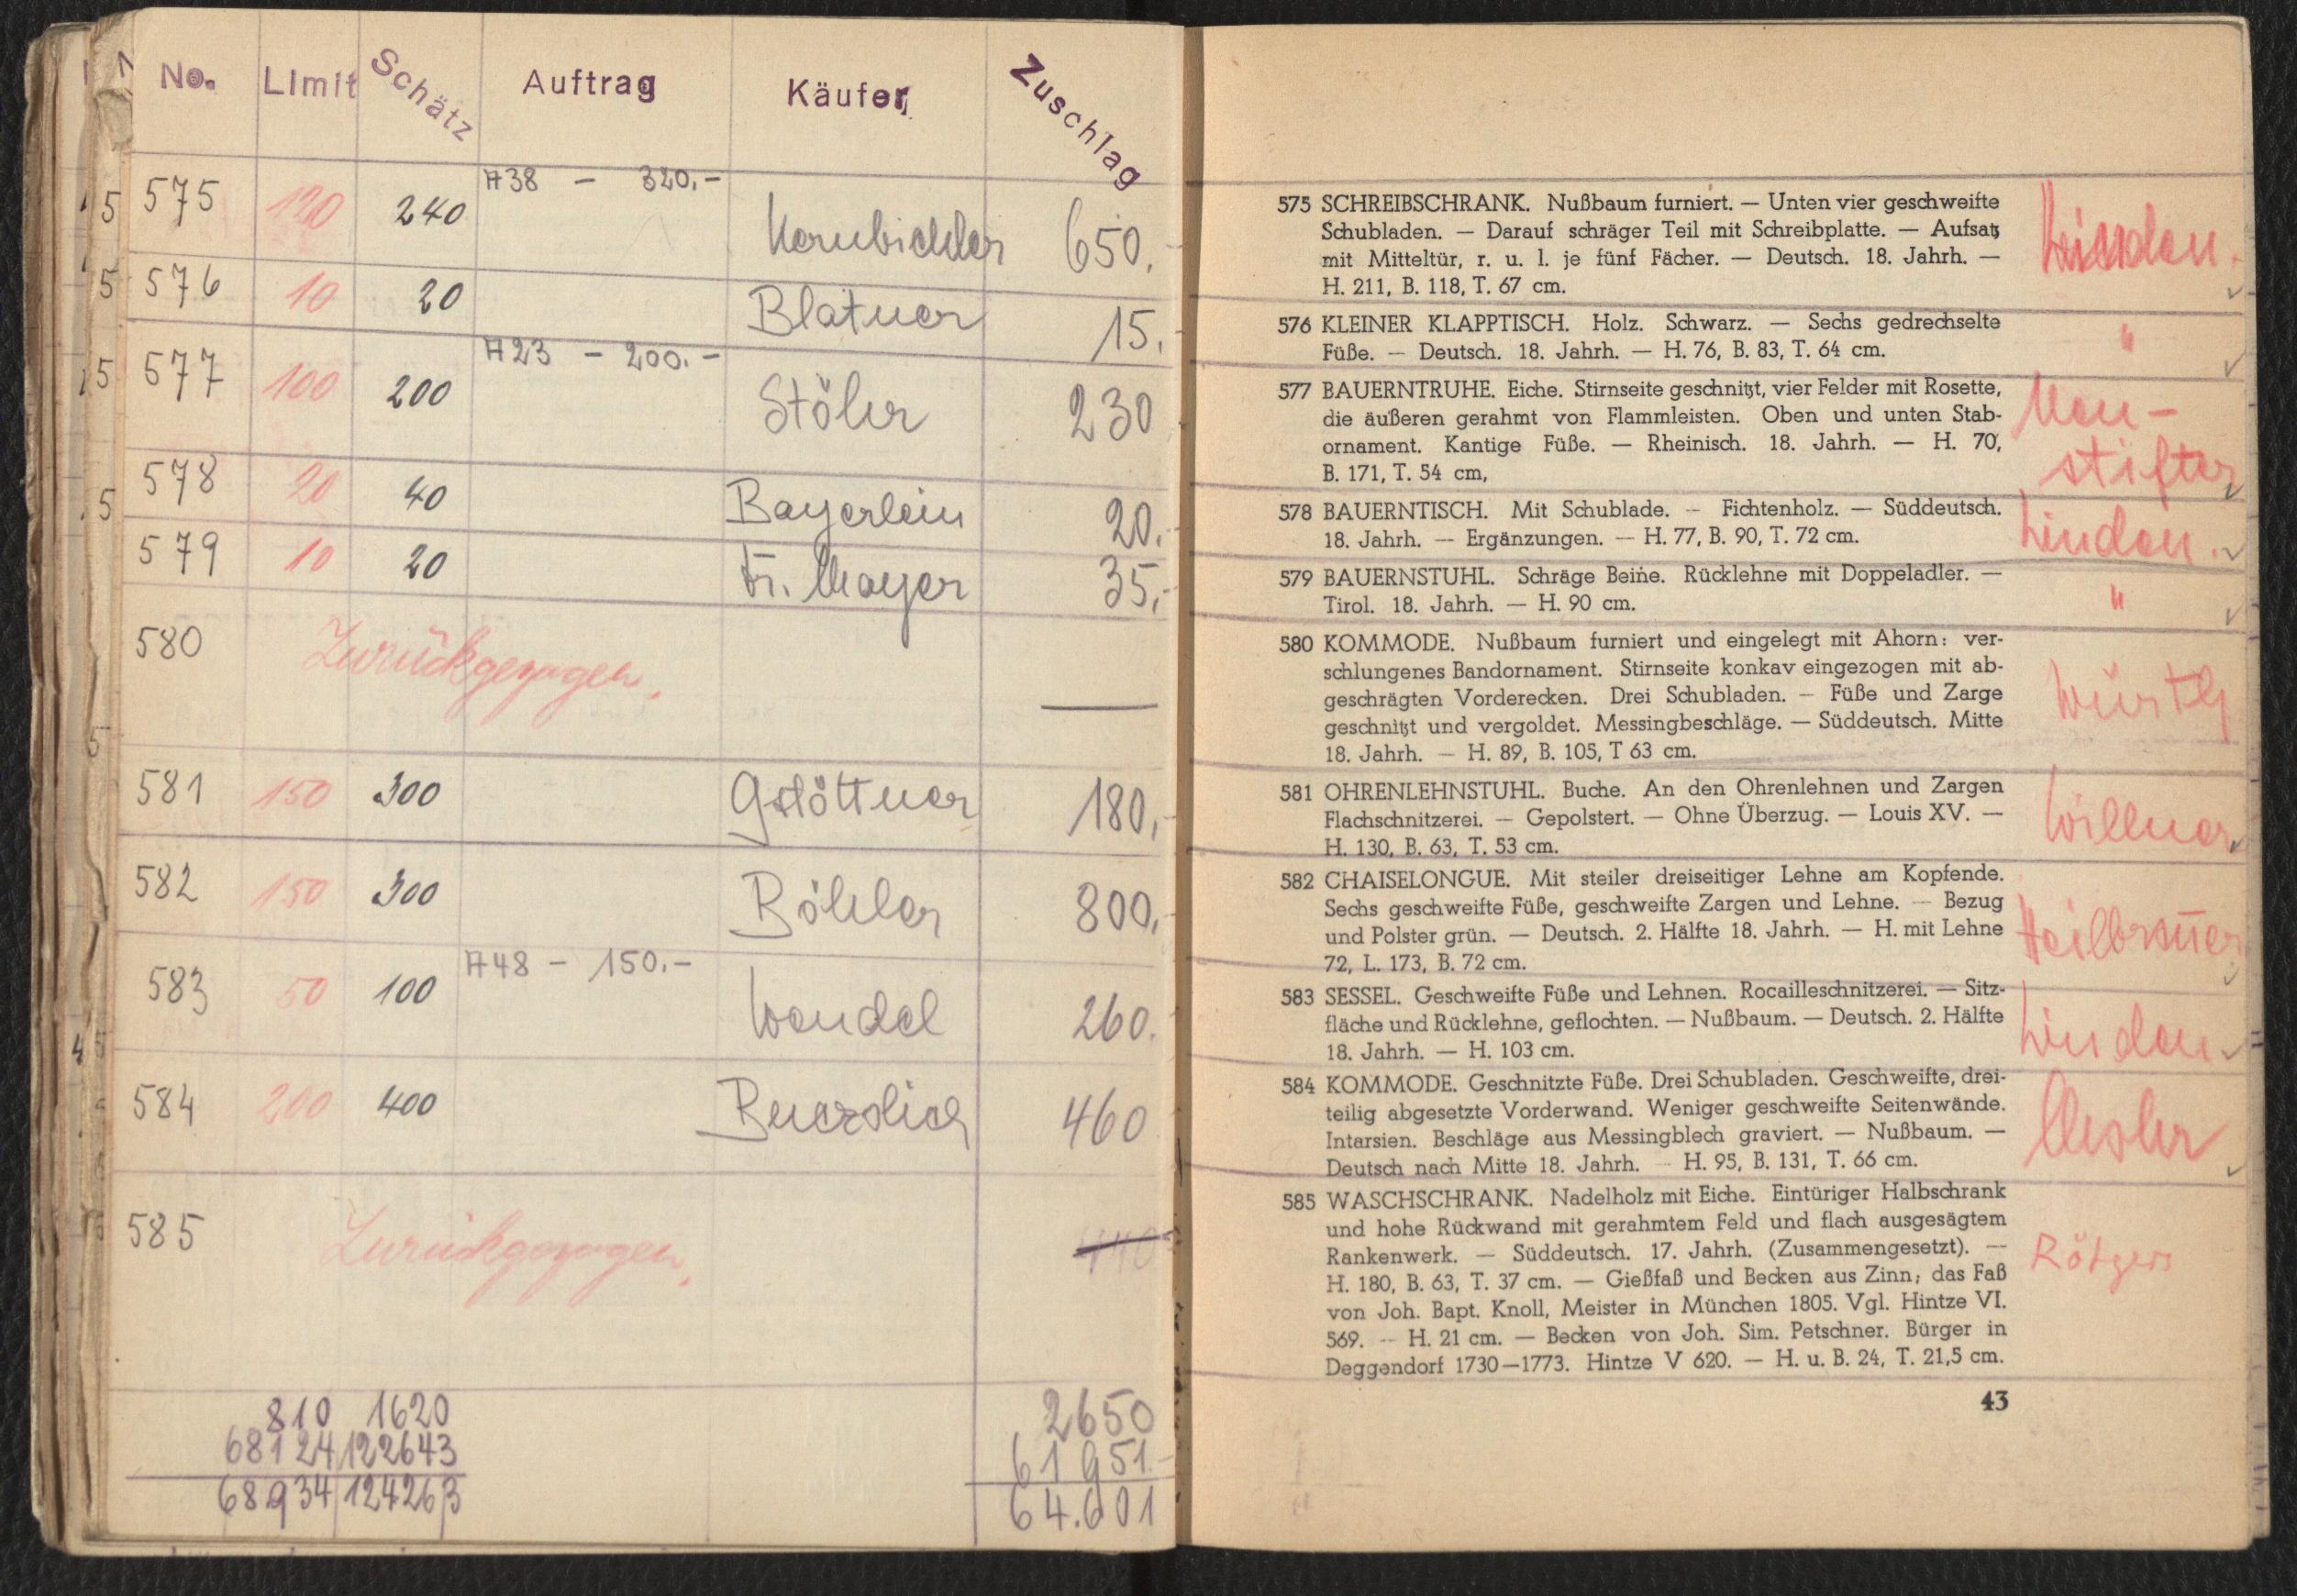 No. Limit Schätz Auftrag Käufer Zuschlag
575 120 240 A38 – 320.– Kornbichler 650.-
576 10 20 Blatner 15.-
577 100 200 A23 – 200.– Stöhr 230
578 20 40 Bayerlein 20.-
579 10 20 Fr. Mayer 35,-
580 Zurückgezogen. —
581 150 300 Gstöttner 180,-
582 150 300 Böhler 800,-
583 50 100 A48 – 150.– Wendel 260.
584 200 400 460
585 Zurückgezogen.
810 1620 2650
68124 122643 61951.-
68934 124263 64.601
575 SCHREIBSCHRANK. Nußbaum furniert. — Unten vier geschweifte
Schubladen. — Darauf schräger Teil mit Schreibplatte. — Aufsatz
mit Mitteltür, r. u. l. je fünf Fächer. — Deutsch. 18. Jahrh. —
H. 211, B. 118, T. 67 cm.
Linden.
576 KLEINER KLAPPTISCH. Holz. Schwarz. — Sechs gedrechselte
Füße. — Deutsch. 18. Jahrh. — H. 76, B. 83, T. 64 cm.
"
577 BAUERNTRUHE. Eiche. Stirnseite geschnitzt, vier Felder mit Rosette,
die äußeren gerahmt von Flammleisten. Oben und unten Stab-
ornament. Kantige Füße. — Rheinisch. 18. Jahrh. — H. 70,
B. 171, T. 54 cm,
Neu-
stifter
578 BAUERNTISCH. Mit Schublade. — Fichtenholz. — Süddeutsch.
18. Jahrh. — Ergänzungen. — H. 77, B. 90, T. 72 cm.
Linden.
579 BAUERNSTUHL. Schräge Beine. Rücklehne mit Doppeladler. —
Tirol. 18. Jahrh. — H. 90 cm.
"
580 KOMMODE. Nußbaum furniert und eingelegt mit Ahorn: ver-
schlungenes Bandornament. Stirnseite konkav eingezogen mit ab-
geschrägten Vorderecken. Drei Schubladen. — Füße und Zarge
geschnitzt und vergoldet. Messingbeschläge. — Süddeutsch. Mitte
18. Jahrh. — H. 89, B. 105, T 63 cm.
Würth
581 OHRENLEHNSTUHL. Buche. An den Ohrenlehnen und Zargen
Flachschnitzerei. — Gepolstert. — Ohne Überzug. — Louis XV. —
H. 130, B. 63, T. 53 cm.
Willner
582 CHAISELONGUE. Mit steiler dreiseitiger Lehne am Kopfende.
Sechs geschweifte Füße, geschweifte Zargen und Lehne. — Bezug
und Polster grün. — Deutsch. 2. Hälfte 18. Jahrh. — H. mit Lehne
72, L. 173, B. 72 cm.
583 SESSEL. Geschweifte Füße und Lehnen. Rocailleschnitzerei. — Sitz-
fläche und Rücklehne, geflochten. — Nußbaum. — Deutsch. 2. Hälfte
18. Jahrh. — H. 103 cm.
Linden
584 KOMMODE. Geschnitzte Füße. Drei Schubladen. Geschweifte, drei-
teilig abgesetzte Vorderwand. Weniger geschweifte Seitenwände.
Intarsien. Beschläge aus Messingblech graviert. — Nußbaum. —
Deutsch nach Mitte 18. Jahrh. — H. 95, B. 131, T. 66 cm.
585 WASCHSCHRANK. Nadelholz mit Eiche. Eintüriger Halbschrank
und hohe Rückwand mit gerahmtem Feld und flach ausgesägtem
Rankenwerk. — Süddeutsch. 17. Jahrh. (Zusammengesetzt). —
H. 180, B. 63, T. 37 cm. — Gießfaß und Becken aus Zinn; das Faß
von Joh. Bapt. Knoll, Meister in München 1805. Vgl. Hintze VI.
569. — H. 21 cm. — Becken von Joh. Sim. Petschner. Bürger in
Deggendorf 1730—1773. Hintze V 620. — H. u. B. 24, T. 21,5 cm.
Rötgers
43